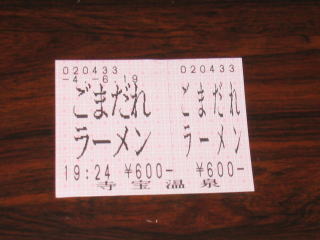 020433 020433
-4.-6.19
ごまだれ ごまだれ
ラーメン ラーメン
19:24 ¥600- ¥600-
寺宝温泉